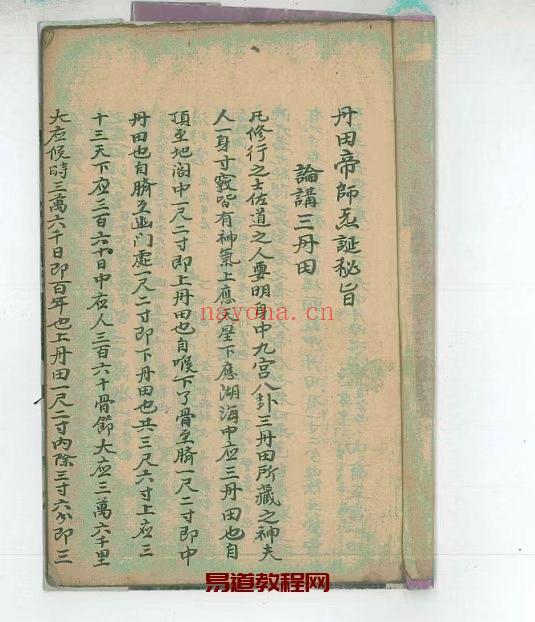 丹田帝師丟誕秘旨
論講三丹田
凡修行之士佐道之人要明身中九宮八卦三丹田所藏之神夫
人一身寸竅皆有神氣上應天星下應湖海中應三丹田也自
頂至地閣中一尺二寸即上丹田也自喉下了骨至臍一尺二寸即中
丹田也自臍至幽门處一尺二寸即下丹田也共三尺六寸上应三
十三天下应三百六十日中应人三百六十骨節大应三萬六千里
大应候時三萬六千日即百年也上丹田一尺二寸内除三寸六分即三
nayona.cn
易道教程网